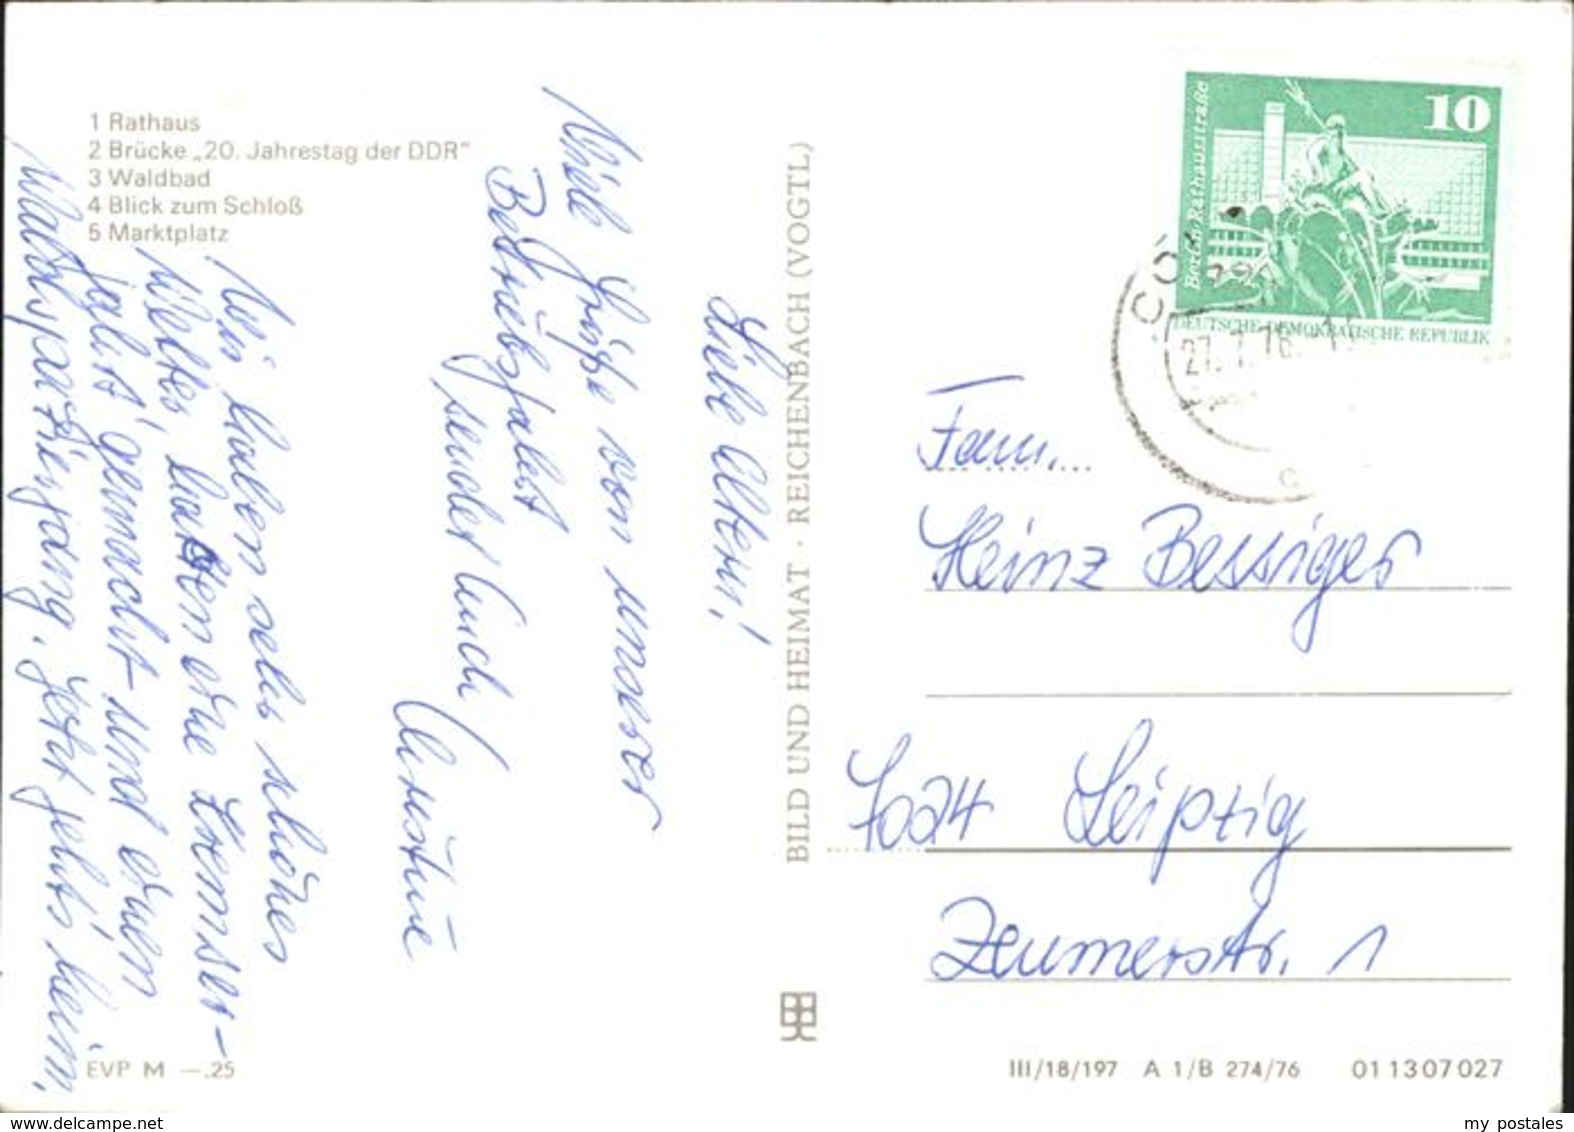 1 Rathaus
2 Brücke „20. Jahrestag der DDR"
3 Waldbad
4 Blick zum Schloß
5 Marktplatz
Liebe Eltern!
Viele Grüße von unserer
Betriebsfahrt
sendet Euch
Christine
Wir haben sehr schönes
Wetter, hatten eine
fahrt gemacht und einen
Waldspaziergang. Jetzt geht's heim.
EVP M —.25
BILD UND HEIMAT · REICHENBACH (VOGTL)
10
Berlin, Rathausstraße
DEUTSCHE DEMOKRATISCHE REPUBLIK
27.7.76
Fam.
Heinz Bessiger
7024 Leipzig
Zeumerstr. 1
III/18/197 A 1/B 274/76 01 13 07 027
my postales
www.delcampe.net